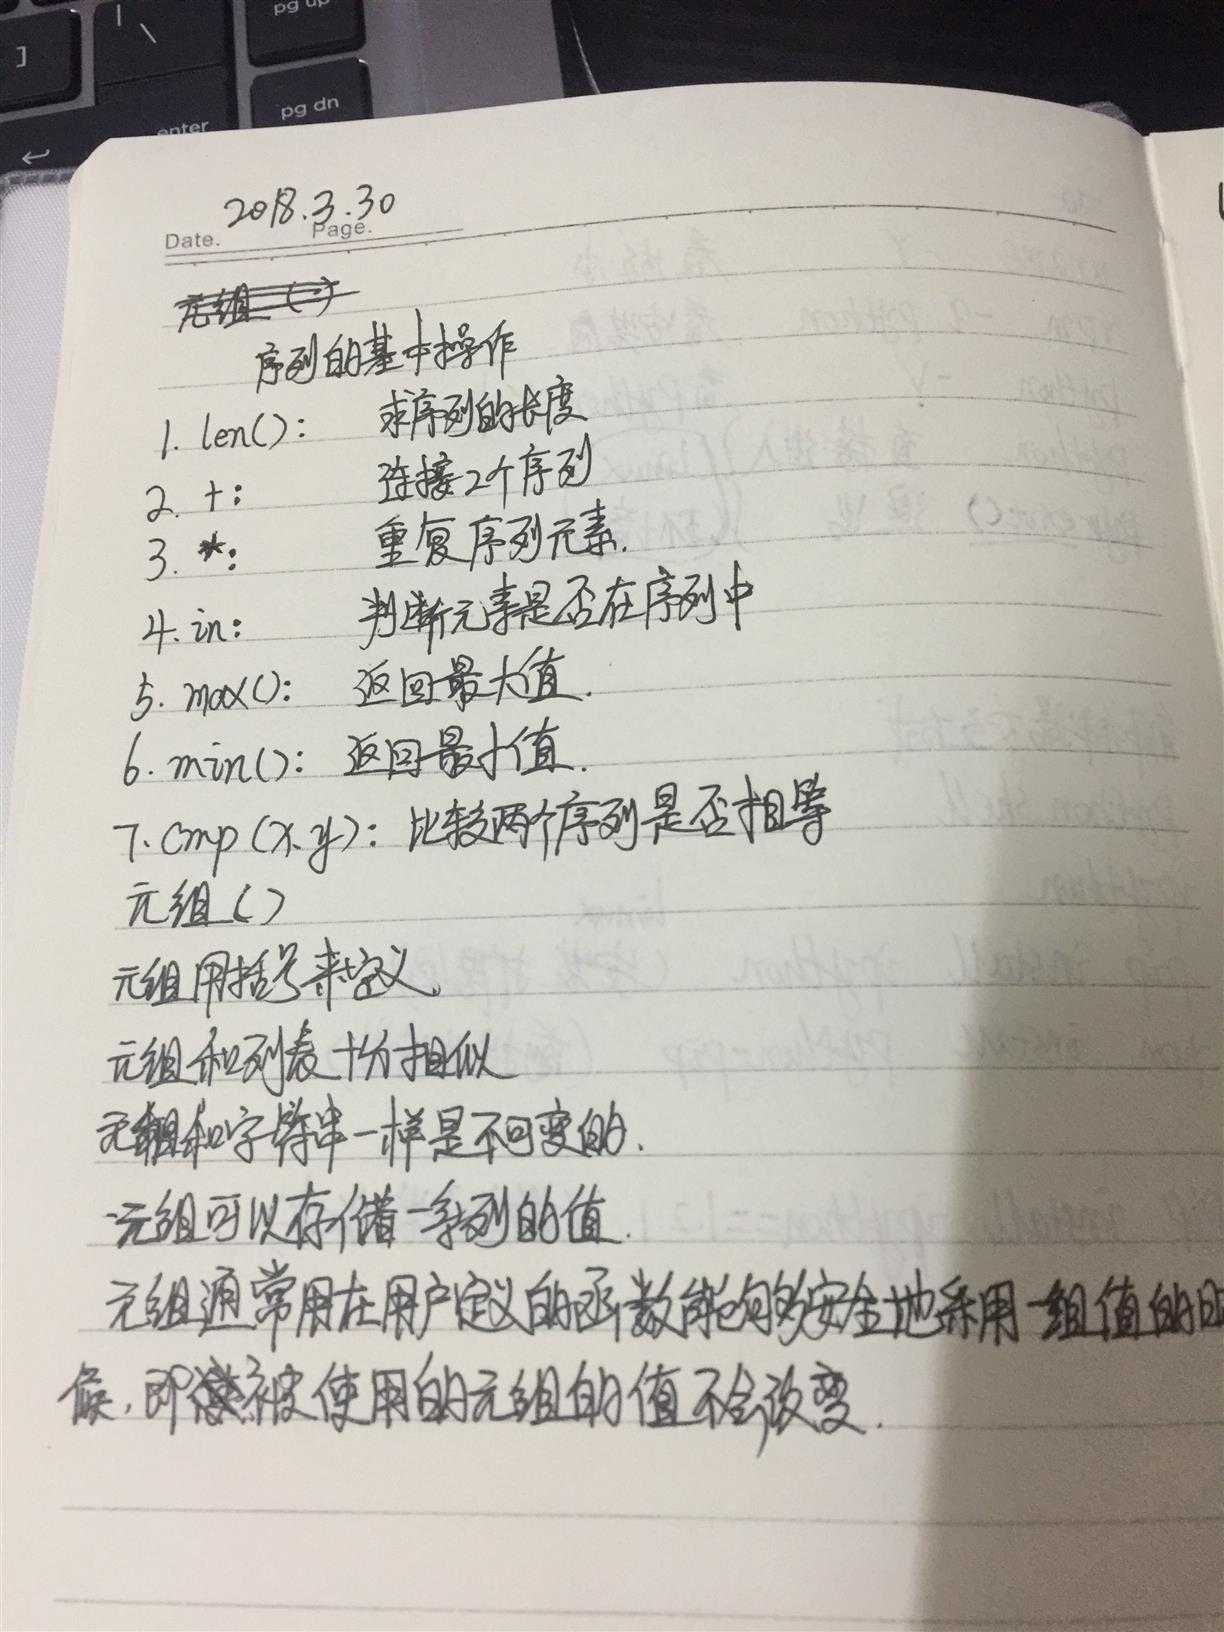 pg up
]
| \
pg dn
enter
2018.3.30
Date. Page.
元组（）
序列的基本操作
1. len()： 求序列的长度
2. +： 连接2个序列
3. *： 重复序列元素.
4. in： 判断元素是否在序列中
5. max()： 返回最大值.
6. min()： 返回最小值.
7. cmp(x.y)： 比较两个序列是否相等
元组()
元组用括号来定义.
元组和列表十分相似
元组和字符串一样是不可变的.
元组可以存储着一系列的值.
元组通常用在用户定义的函数能够安全地采用一组值的时
候，即被使用的元组的值不会改变.